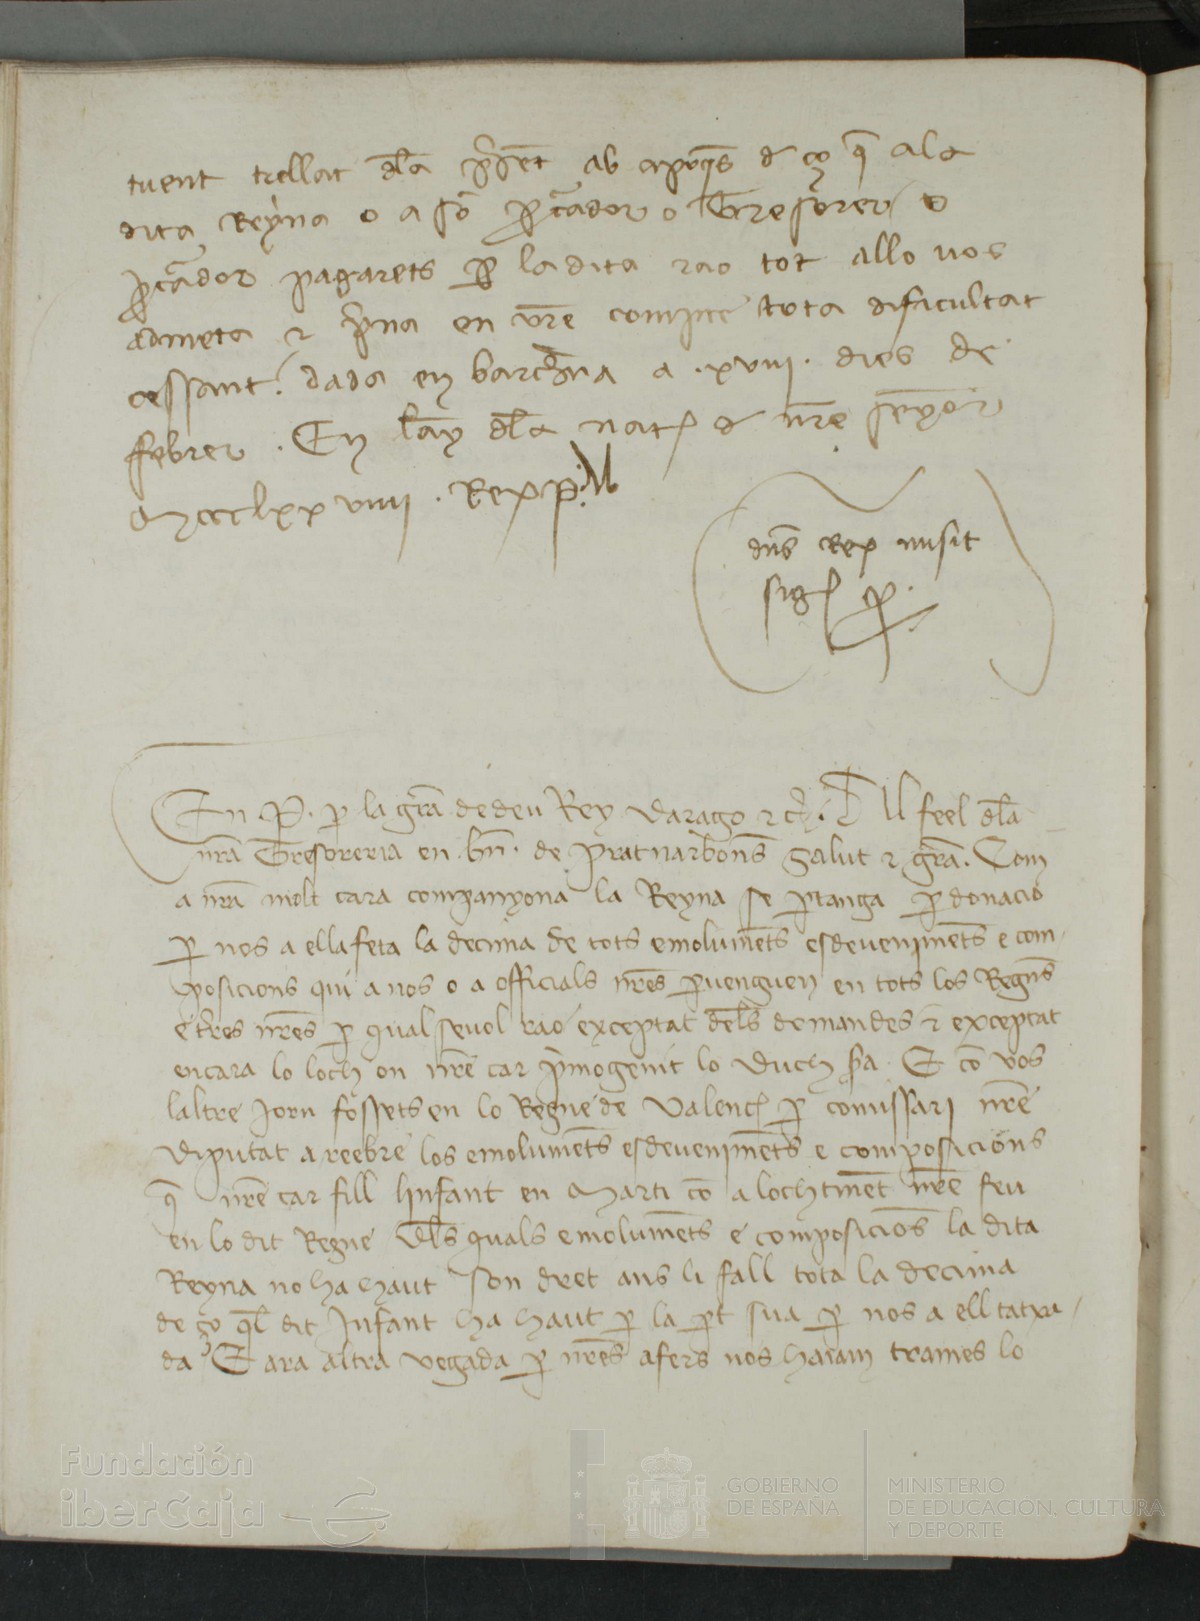 tuent trellat dla present ab apoques d ço q ala
dita Reyna o a so pcador o Tresorer o
pcador pagarets p la dita rao tot allo uos
admeta z prna en vre compte tota dificultat
cessant. dada en barchna a .xviii. dies de
febrer. En lay dla nat d nre senyor
Mccclxx viiii. Rex p.
dns Rex misit
sig p.
En .P. p la gra de deu Rey Darago z c. Al feel dla
nra Tresoreria en .bn. de Pratnarbones Salut z gra. Com
a nra molt cara companyona la Reyna se ptanga p donacio
p nos a ella feta la decima de tots emolumets esdeuenimets e com-
posicions qui a nos o a officials nres puenguen en tots los Regns
e tres nres p qual seuol rao exceptat dels demandes z exceptat
encara lo loch on nre car pmogenit lo Duch sia. E co vos
laltre jorn fossets en lo Regne de Valenc p comissari nre
diputat a reebre los emolumets esdeuenimets e composicions
q nre car fill linfant en Marti co a lochtinet nre feu
en lo dit Regne Dls quals emolumets e composicios la dita
Reyna no ha haut son dret ans li fall tota la decima
de ço ql dit Infant ha haut p la pt sua p nos a ell tatxa-
da E ara altra vegada p nres afers uos haiam trames lo
Fundación
iberCaja
GOBIERNO
DE ESPAÑA
MINISTERIO
DE EDUCACIÓN, CULTURA
Y DEPORTE